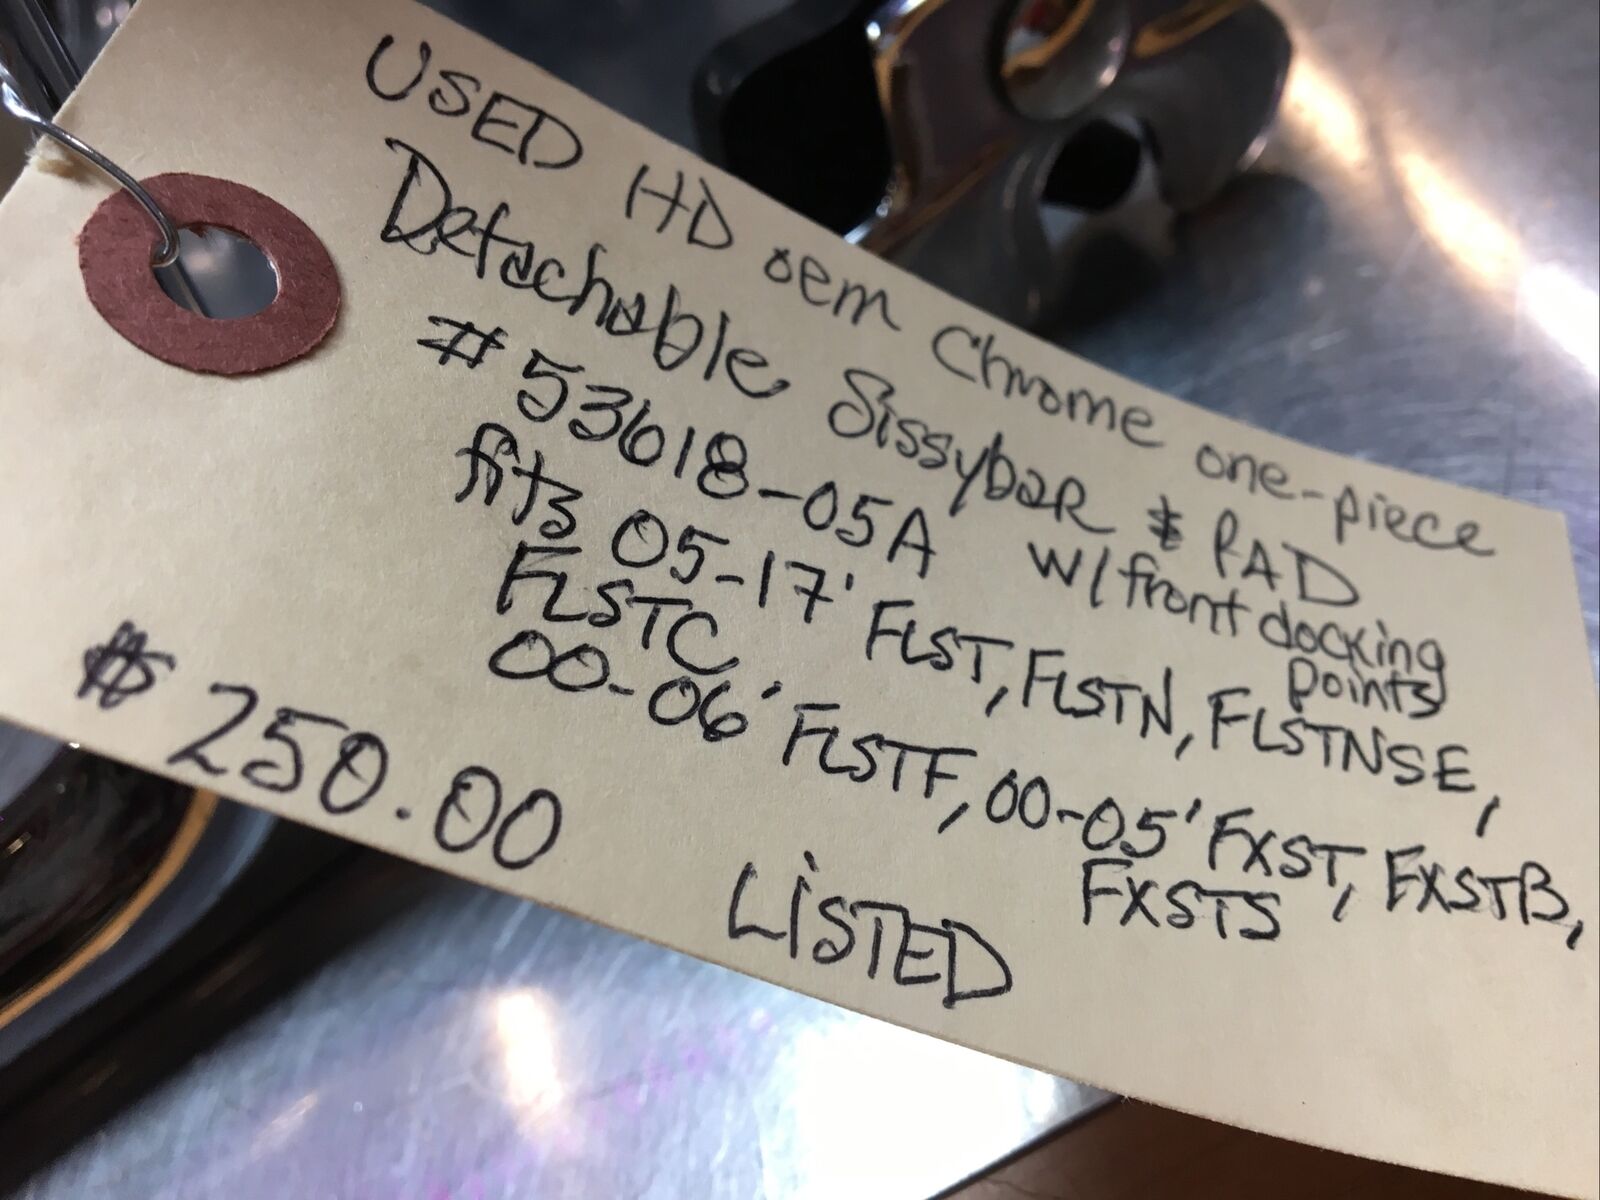 USED HD oem Chrome one-piece
Detachable Sissybar & PAD
# 53618-05A w/front docking
points
fits 05-17' FLST, FLSTN, FLSTNSE,
FLSTC,
00-06' FLSTF, 00-05' FXST, FXSTB,
FXSTS
$ 250.00
LiSTED